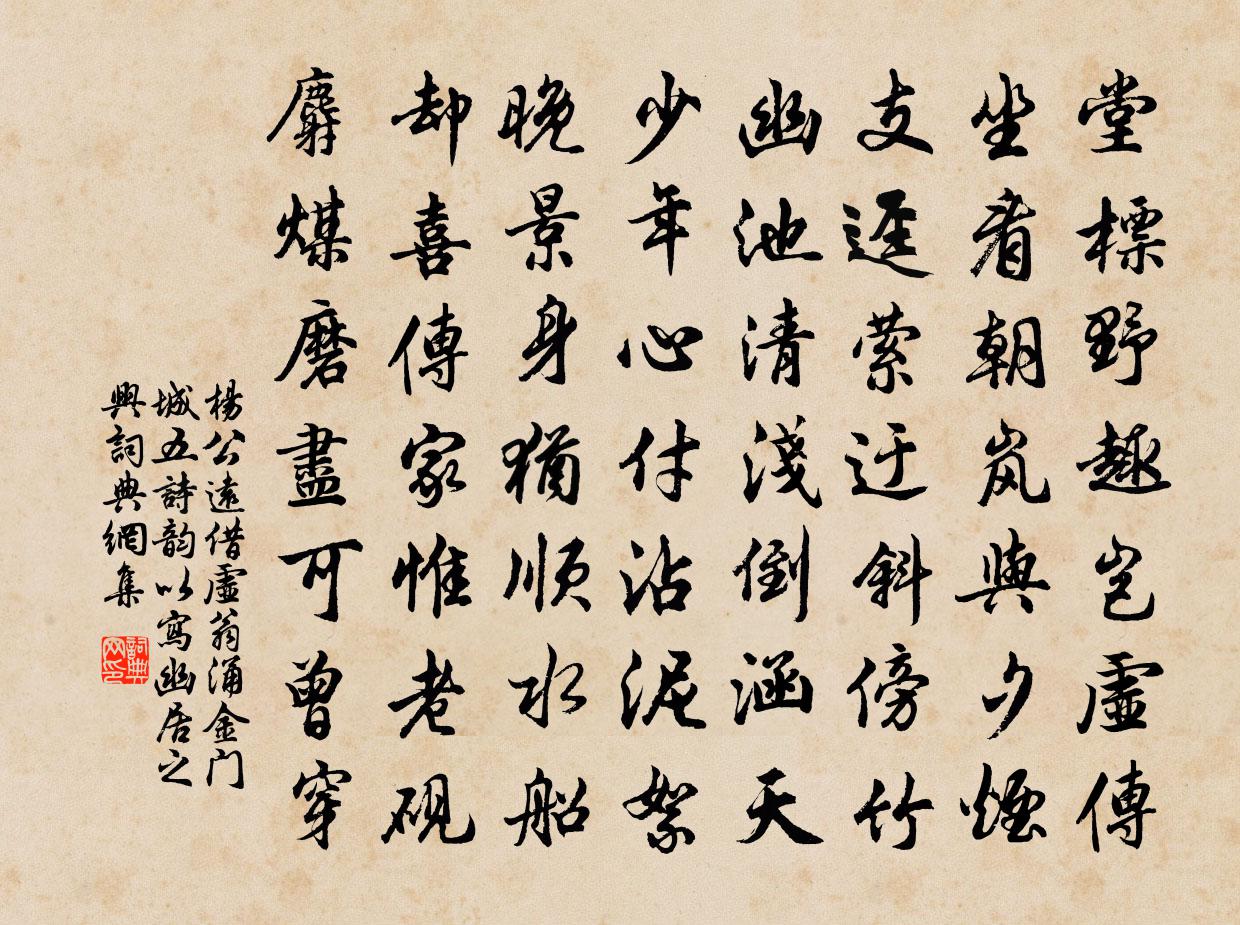 堂標野趣豈虛傳
坐看朝嵐與夕煙
支逕縈迂斜傍竹
幽池清淺倒涵天
少年心付沾泥絮
晚景身猶順水船
却喜傳家惟老硯
麝煤磨盡可曾穿
楊公遠借虛翁涌金门
城五詩韵以寫幽居之
興詞典網集
詞典
网印